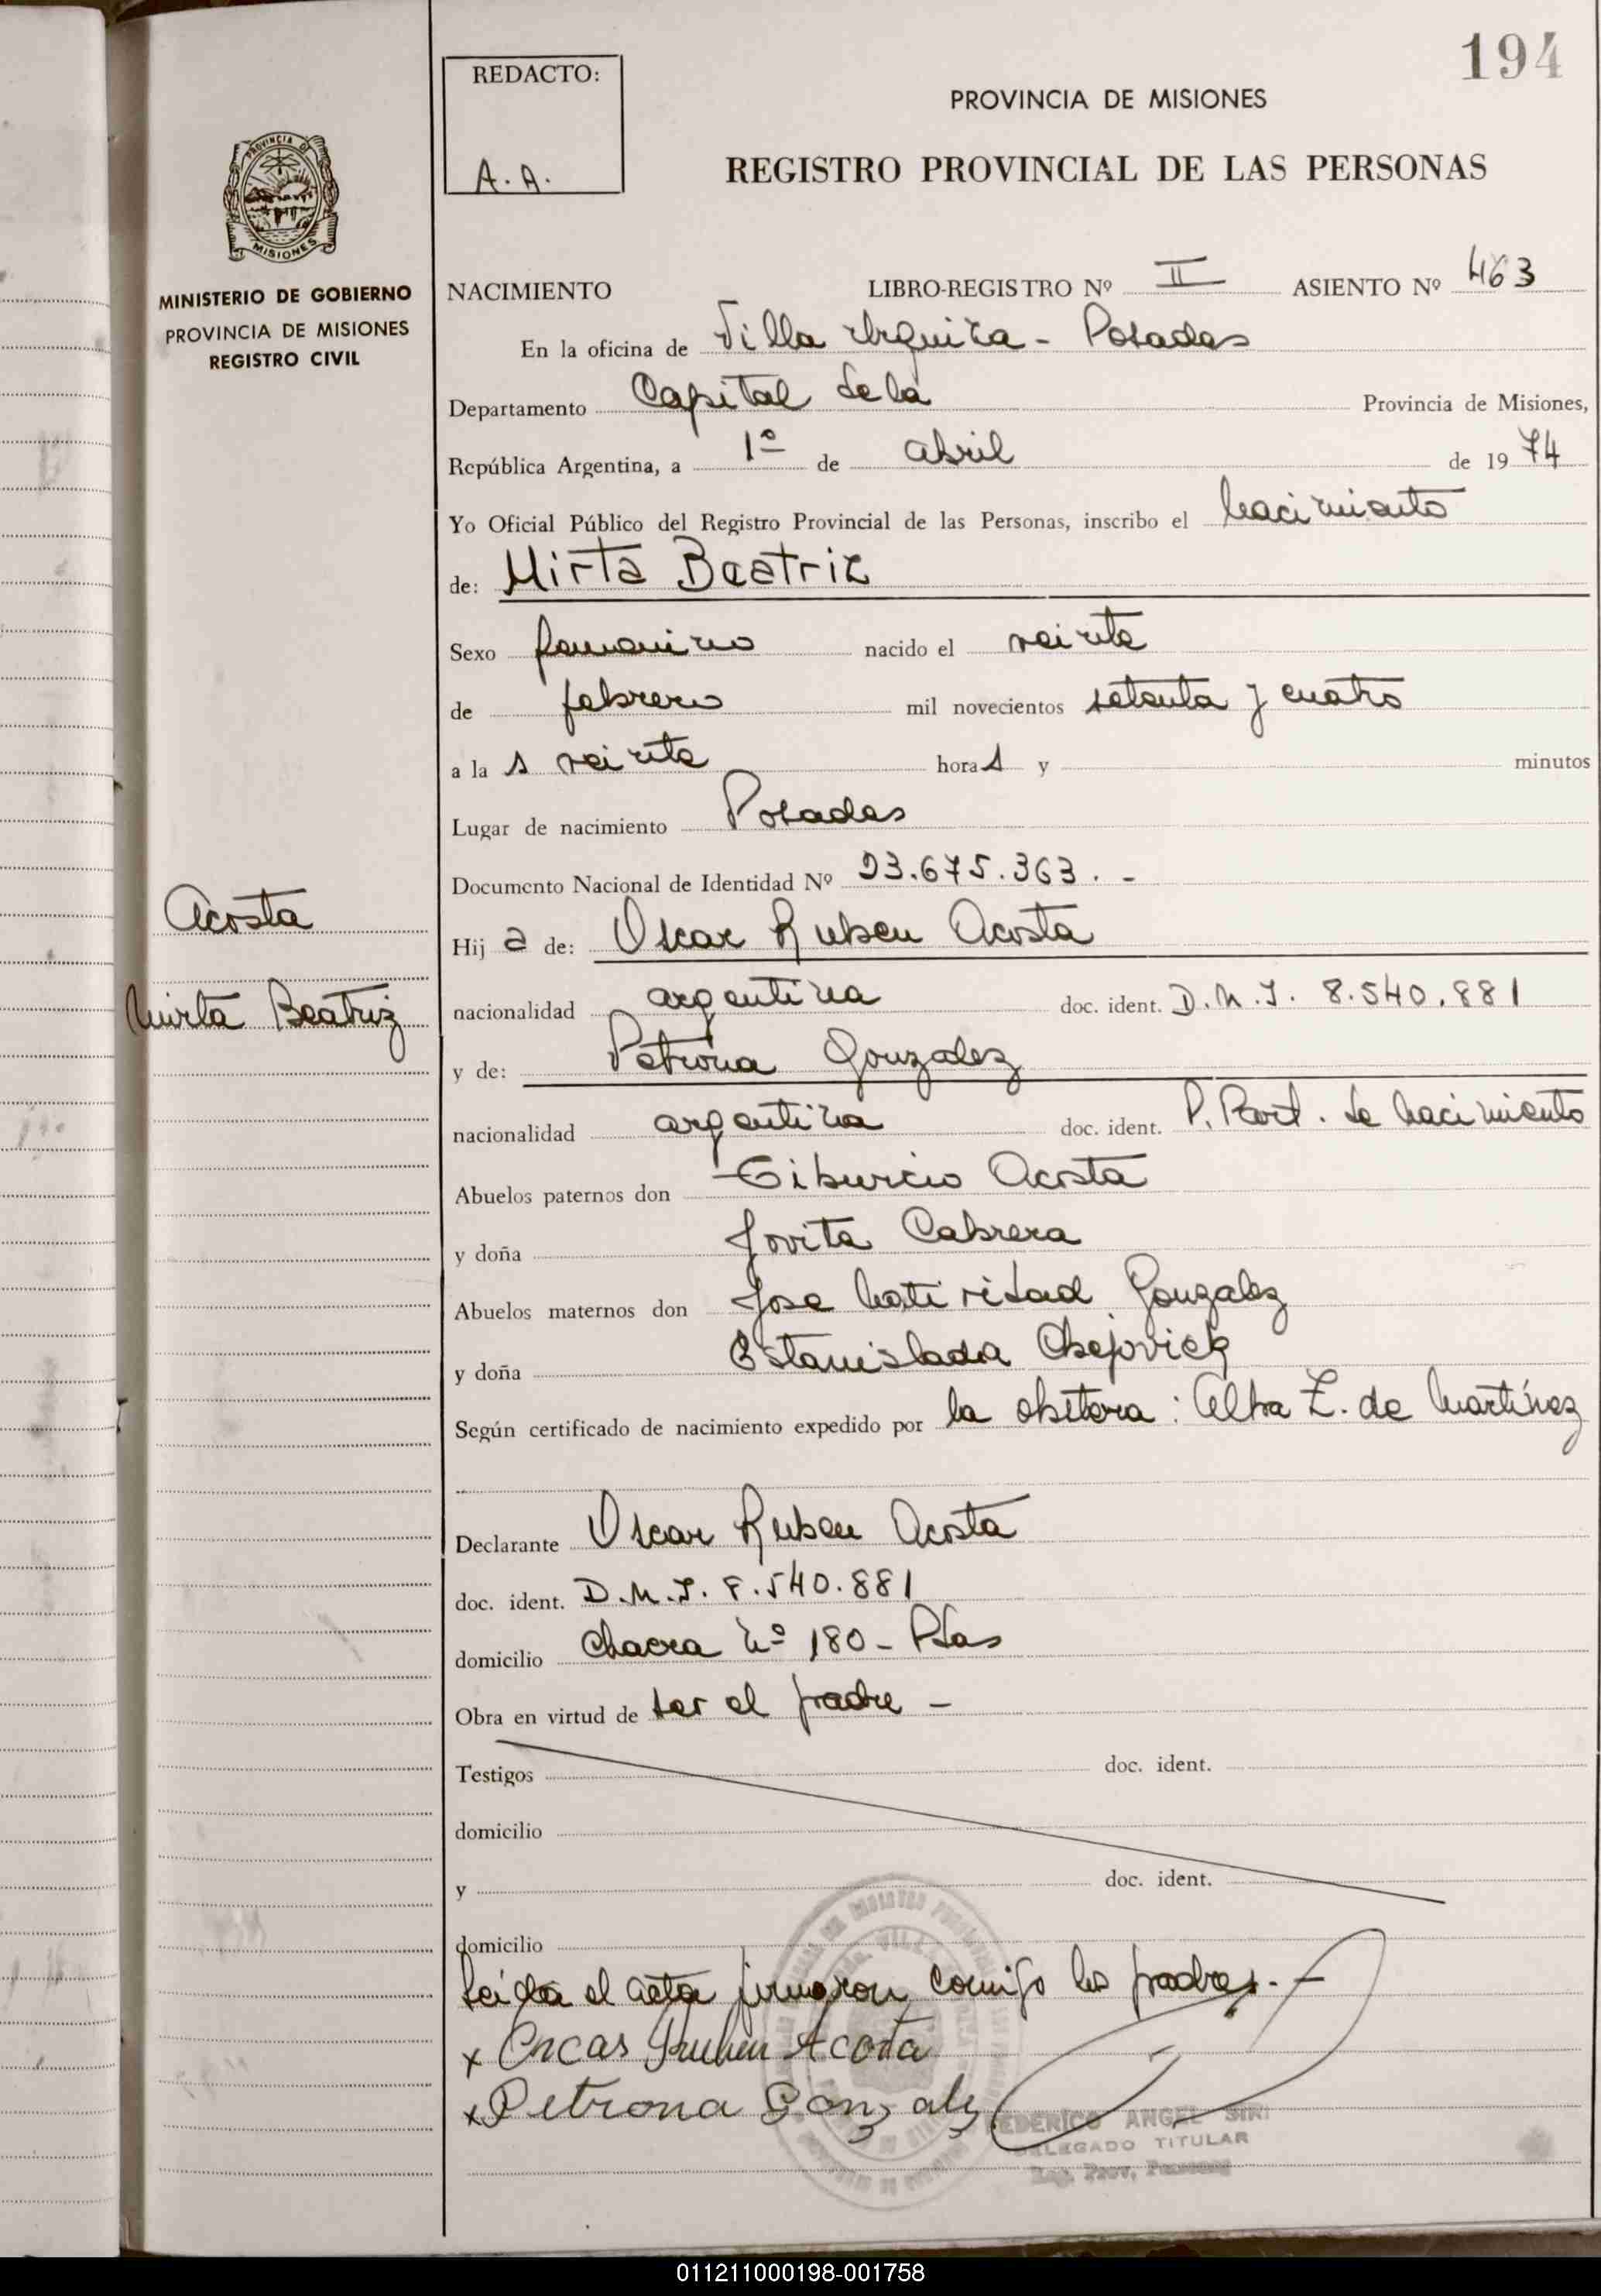 194
REDACTO:
A. A.
PROVINCIA DE MISIONES
REGISTRO PROVINCIAL DE LAS PERSONAS
PROVINCIA DE
MISIONES
MINISTERIO DE GOBIERNO
PROVINCIA DE MISIONES
REGISTRO CIVIL
NACIMIENTO LIBRO-REGISTRO Nº II ASIENTO Nº 463
En la oficina de Villa Urquiza - Posadas
Departamento Capital de la Provincia de Misiones,
República Argentina, a 1º de abril de 1974
Yo Oficial Público del Registro Provincial de las Personas, inscribo el Nacimiento
de: Mirta Beatriz
Sexo femenino nacido el veinte
de febrero mil novecientos setenta y cuatro
a la s veinte horas y minutos
Lugar de nacimiento Posadas
Documento Nacional de Identidad Nº 23.675.363. -
Acosta
Mirta Beatriz
Hij a de: Oscar Ruben Acosta
nacionalidad argentina doc. ident. D.N.I. 8.540.881
y de: Petrona Gonzalez
nacionalidad argentina doc. ident. P. Part. de Nacimiento
Abuelos paternos don Tiburcio Acosta
y doña Jovita Cabrera
Abuelos maternos don Jose Natividad Gonzalez
y doña Estanislada
Según certificado de nacimiento expedido por la obstetra: Elba Z. de Martínez
Declarante Oscar Ruben Acosta
doc. ident. D.N.I. 8.540.881
domicilio Chacra Nº 180 - Pdas
Obra en virtud de ser el padre -
Testigos doc. ident.
domicilio
y doc. ident.
domicilio
Leída el acta firmaron comigo los padres. -
x Orcas Ruben Acosta
x Petrona Gonzalez
FEDERICO ANGEL SIRI
DELEGADO TITULAR
Reg. Prov. Personas
011211000198-001758